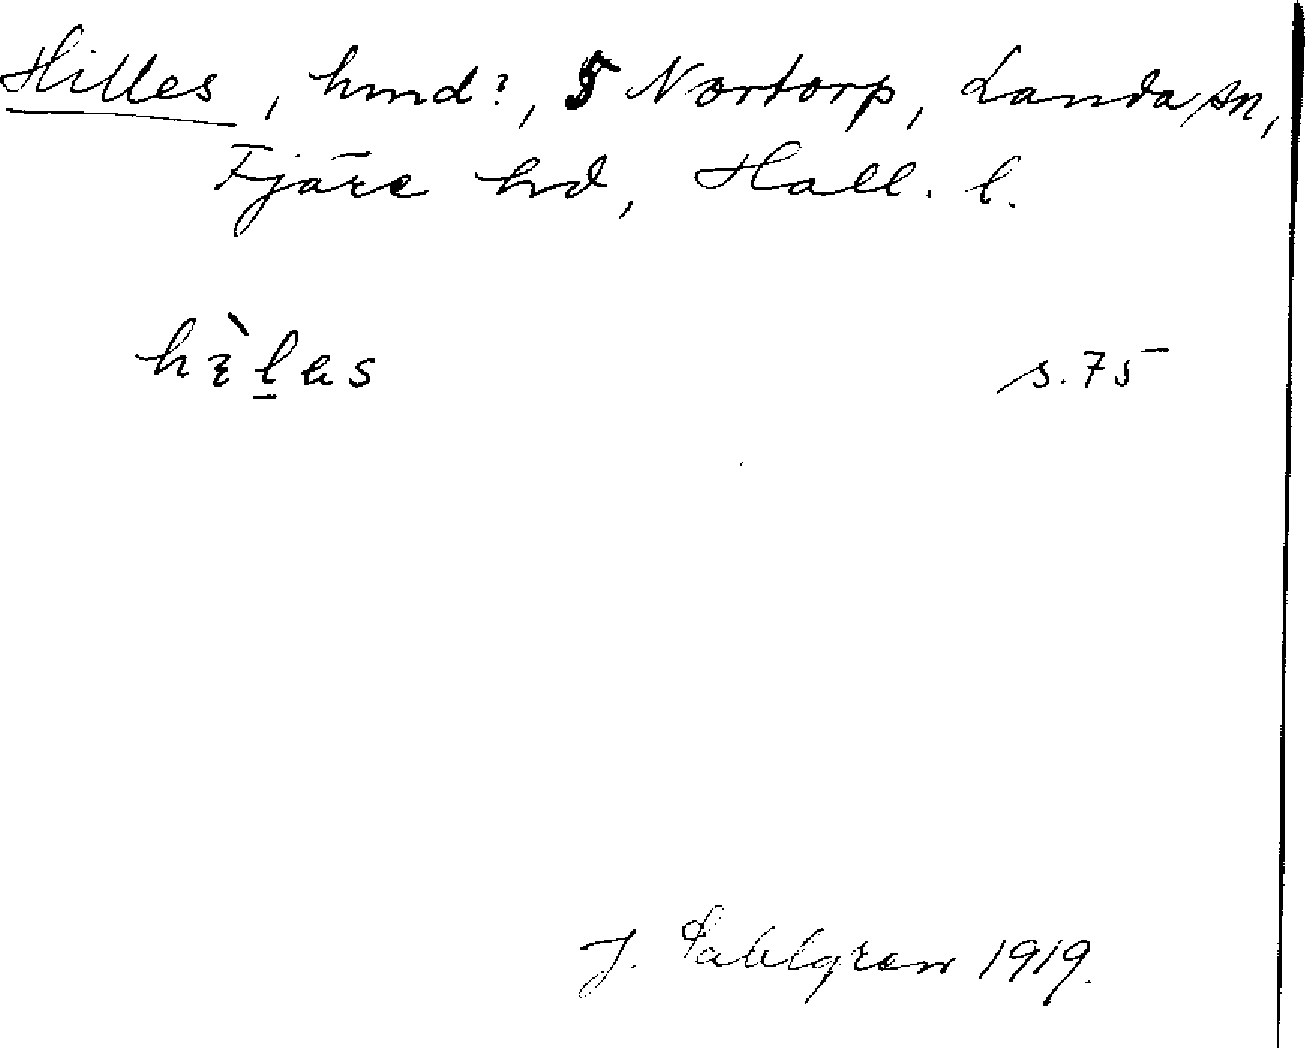 Hilles, hmd?, § Nortorp, Landa sn,
Fjäre hd, Hall. l.
hìlas s. 75
J. Sahlgren 1919.